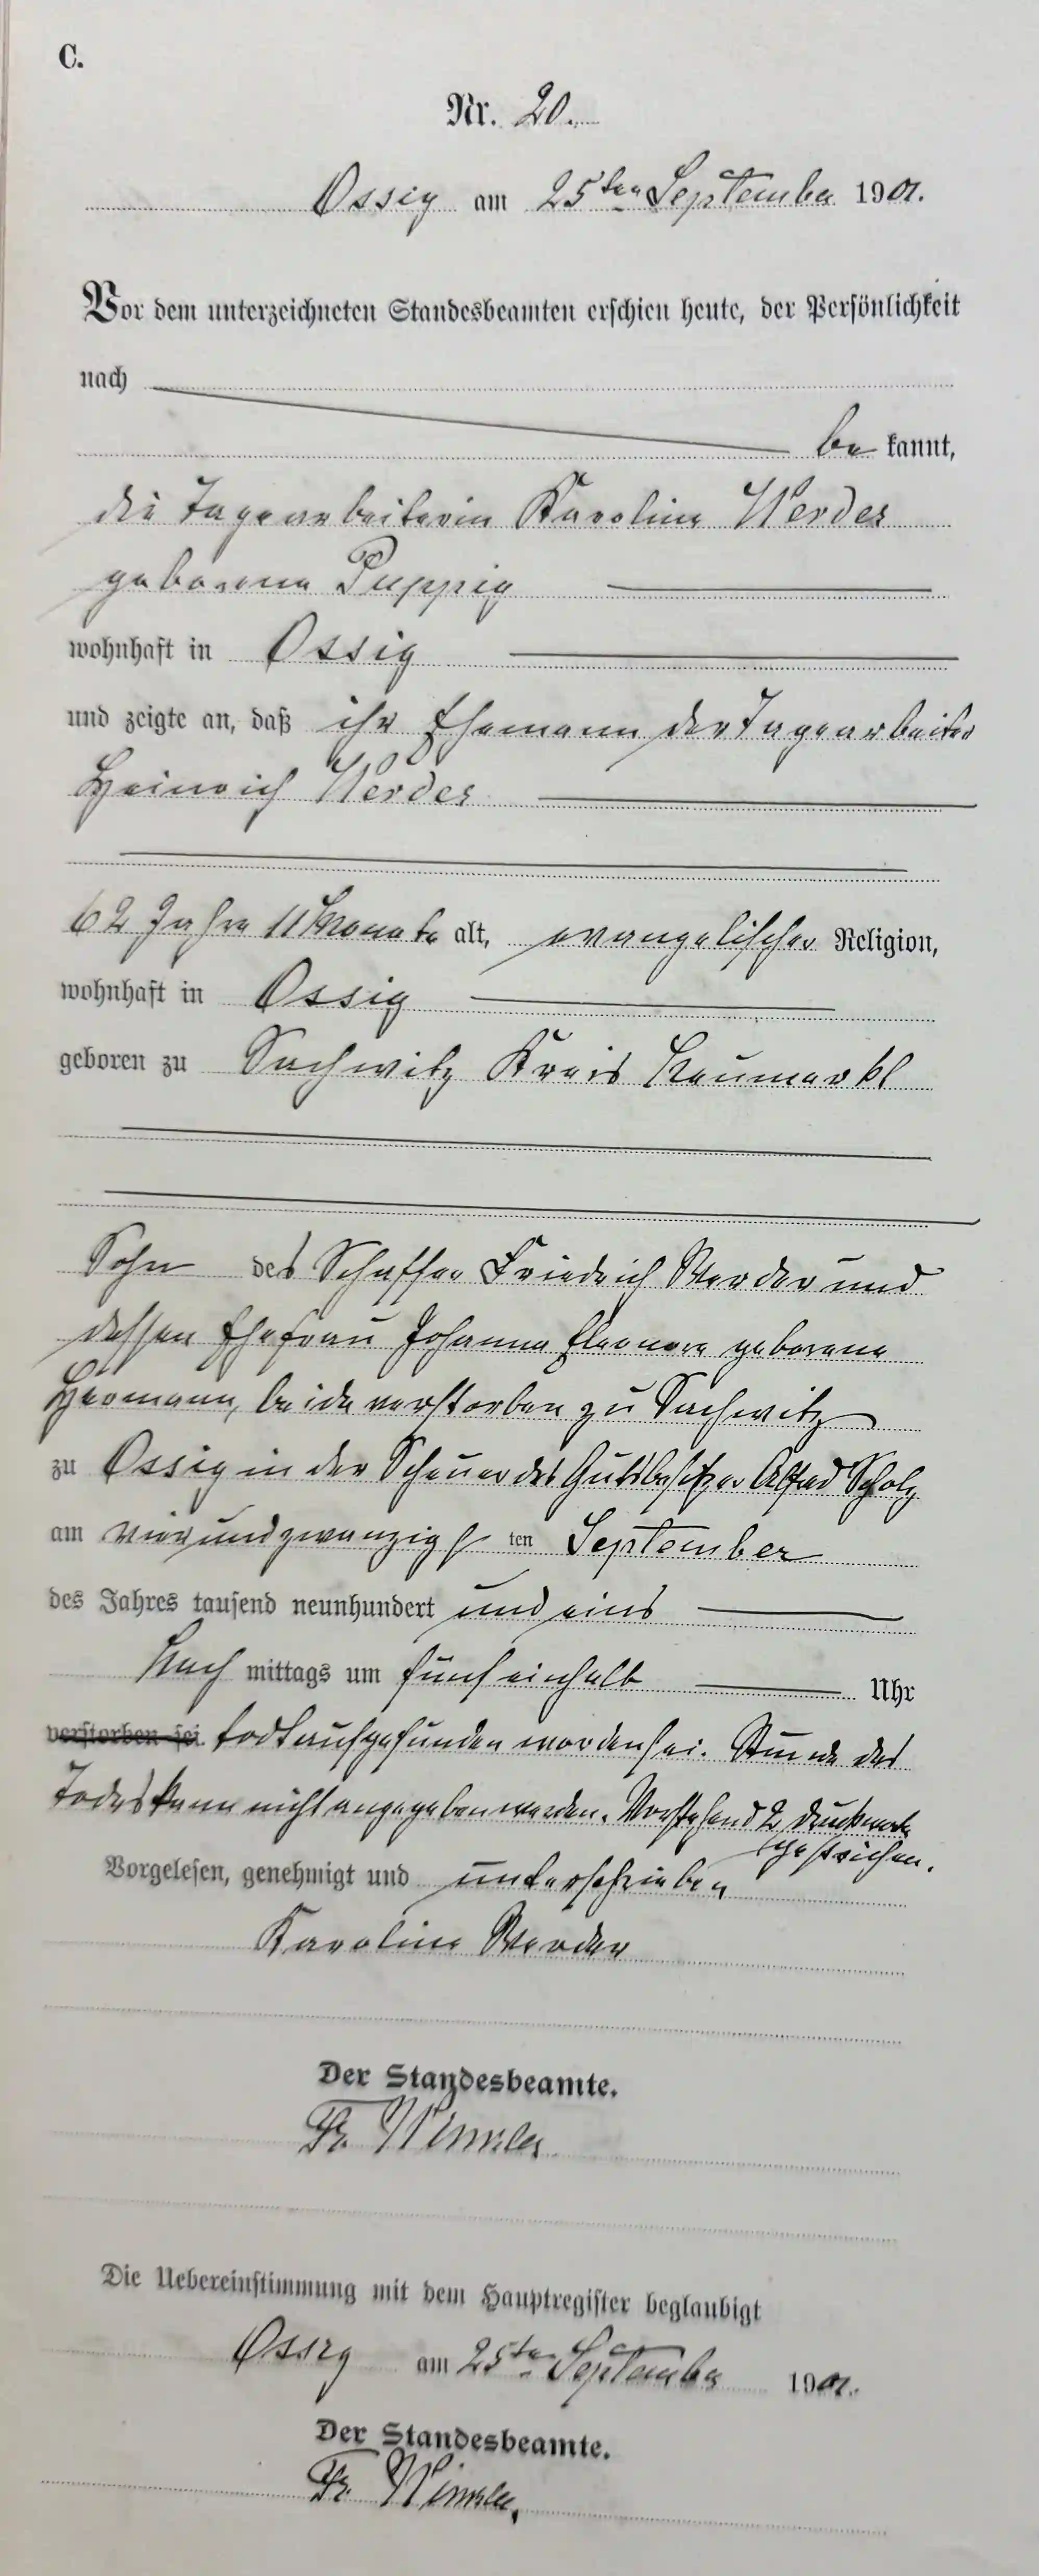 C.
Nr. 20.
Ossig am 25ten September 1901.
Vor dem unterzeichneten Standesbeamten erschien heute, der Persönlichkeit
nach
be kannt,
die Tagearbeiterin Karoline Werder
geborene Puppig
wohnhaft in Ossig
und zeigte an, daß ihr Ehemann der Tagearbeiter
Heinrich Werder
62 Jahre 11 Monate alt, evangelischer Religion,
wohnhaft in Ossig
geboren zu Sachwitz Kreis Neumarkt
Sohn des Schaffer Friedrich Werder und
dessen Ehefrau Johanna Eleonore geborene
Hermann, beide verstorben zu Sachwitz
zu Ossig in der Scheuer des Gutsbesitzer Alfred Scholz
am vierundzwanzigs ten September
des Jahres tausend neunhundert und eins
Nach mittags um fünfeinhalb Uhr
verstorben sei. todt aufgefunden worden sei. Stunde des
Todes kann nicht angegeben werden. Vorstehend 2 Druckworte
gestrichen.
Vorgelesen, genehmigt und unterschrieben
Karoline Werder
Der Standesbeamte.
Fr.
Die Uebereinstimmung mit dem Hauptregister beglaubigt
Ossig am 25ten September 1901.
Der Standesbeamte.
Fr.